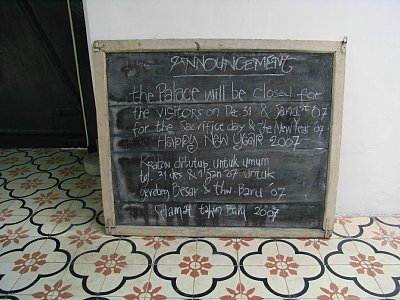 ANNOUNCEMENT
the Palace will be closed for
the visitors on Dec 31 & Jan 1st '07
for the Sacrifice day & the New Year 07
HAPPY NEW YEAR 2007
Kraton ditutup untuk umum
tgl. 31 des & 1 Jan '07 untuk
Besar & thn Baru '07
Selamat tahun Baru 2007